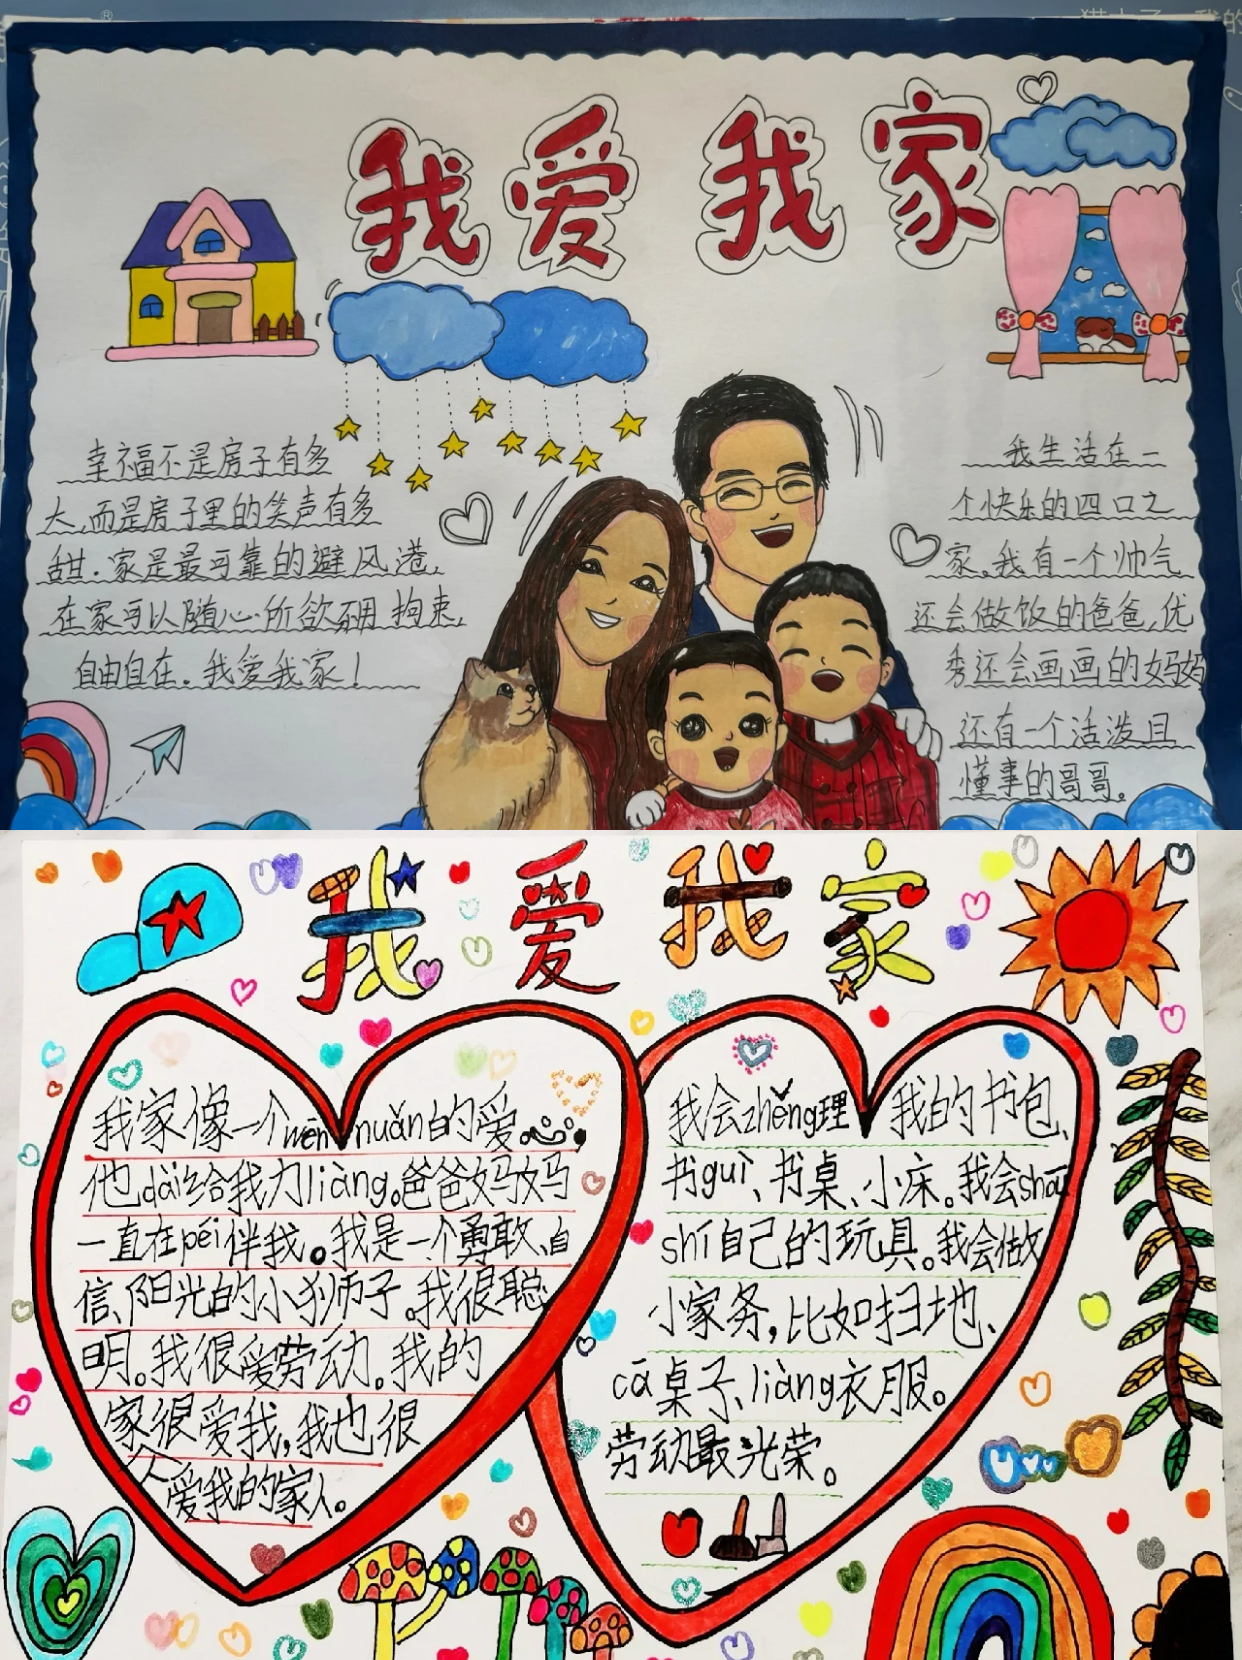 我爱我家
幸福不是房子有多
大,而是房子里的笑声有多
甜.家是最可靠的避风港,
在家可以随心所欲不用拘束,
自由自在。我爱我家!
我生活在一
个快乐的四口之
家。我有一个帅气
还会做饭的爸爸,优
秀还会画画的妈妈
还有一个活泼且
懂事的哥哥。
我爱我家
我家像一个wēn nuǎn的爱
他dài给我力liàng。爸爸妈妈
一直在péi伴我。我是一个勇敢、自
信、阳光的小狮子。我很聪
明。我很爱劳动。我的
家很爱我,我也很
人
爱我的家人。
我会zhěng理我的书包、
书guì、书桌、小床。我会shōu
shí自己的玩具。我会做
小家务,比如扫地、
cā桌子、liàng衣服。
劳动最光荣。